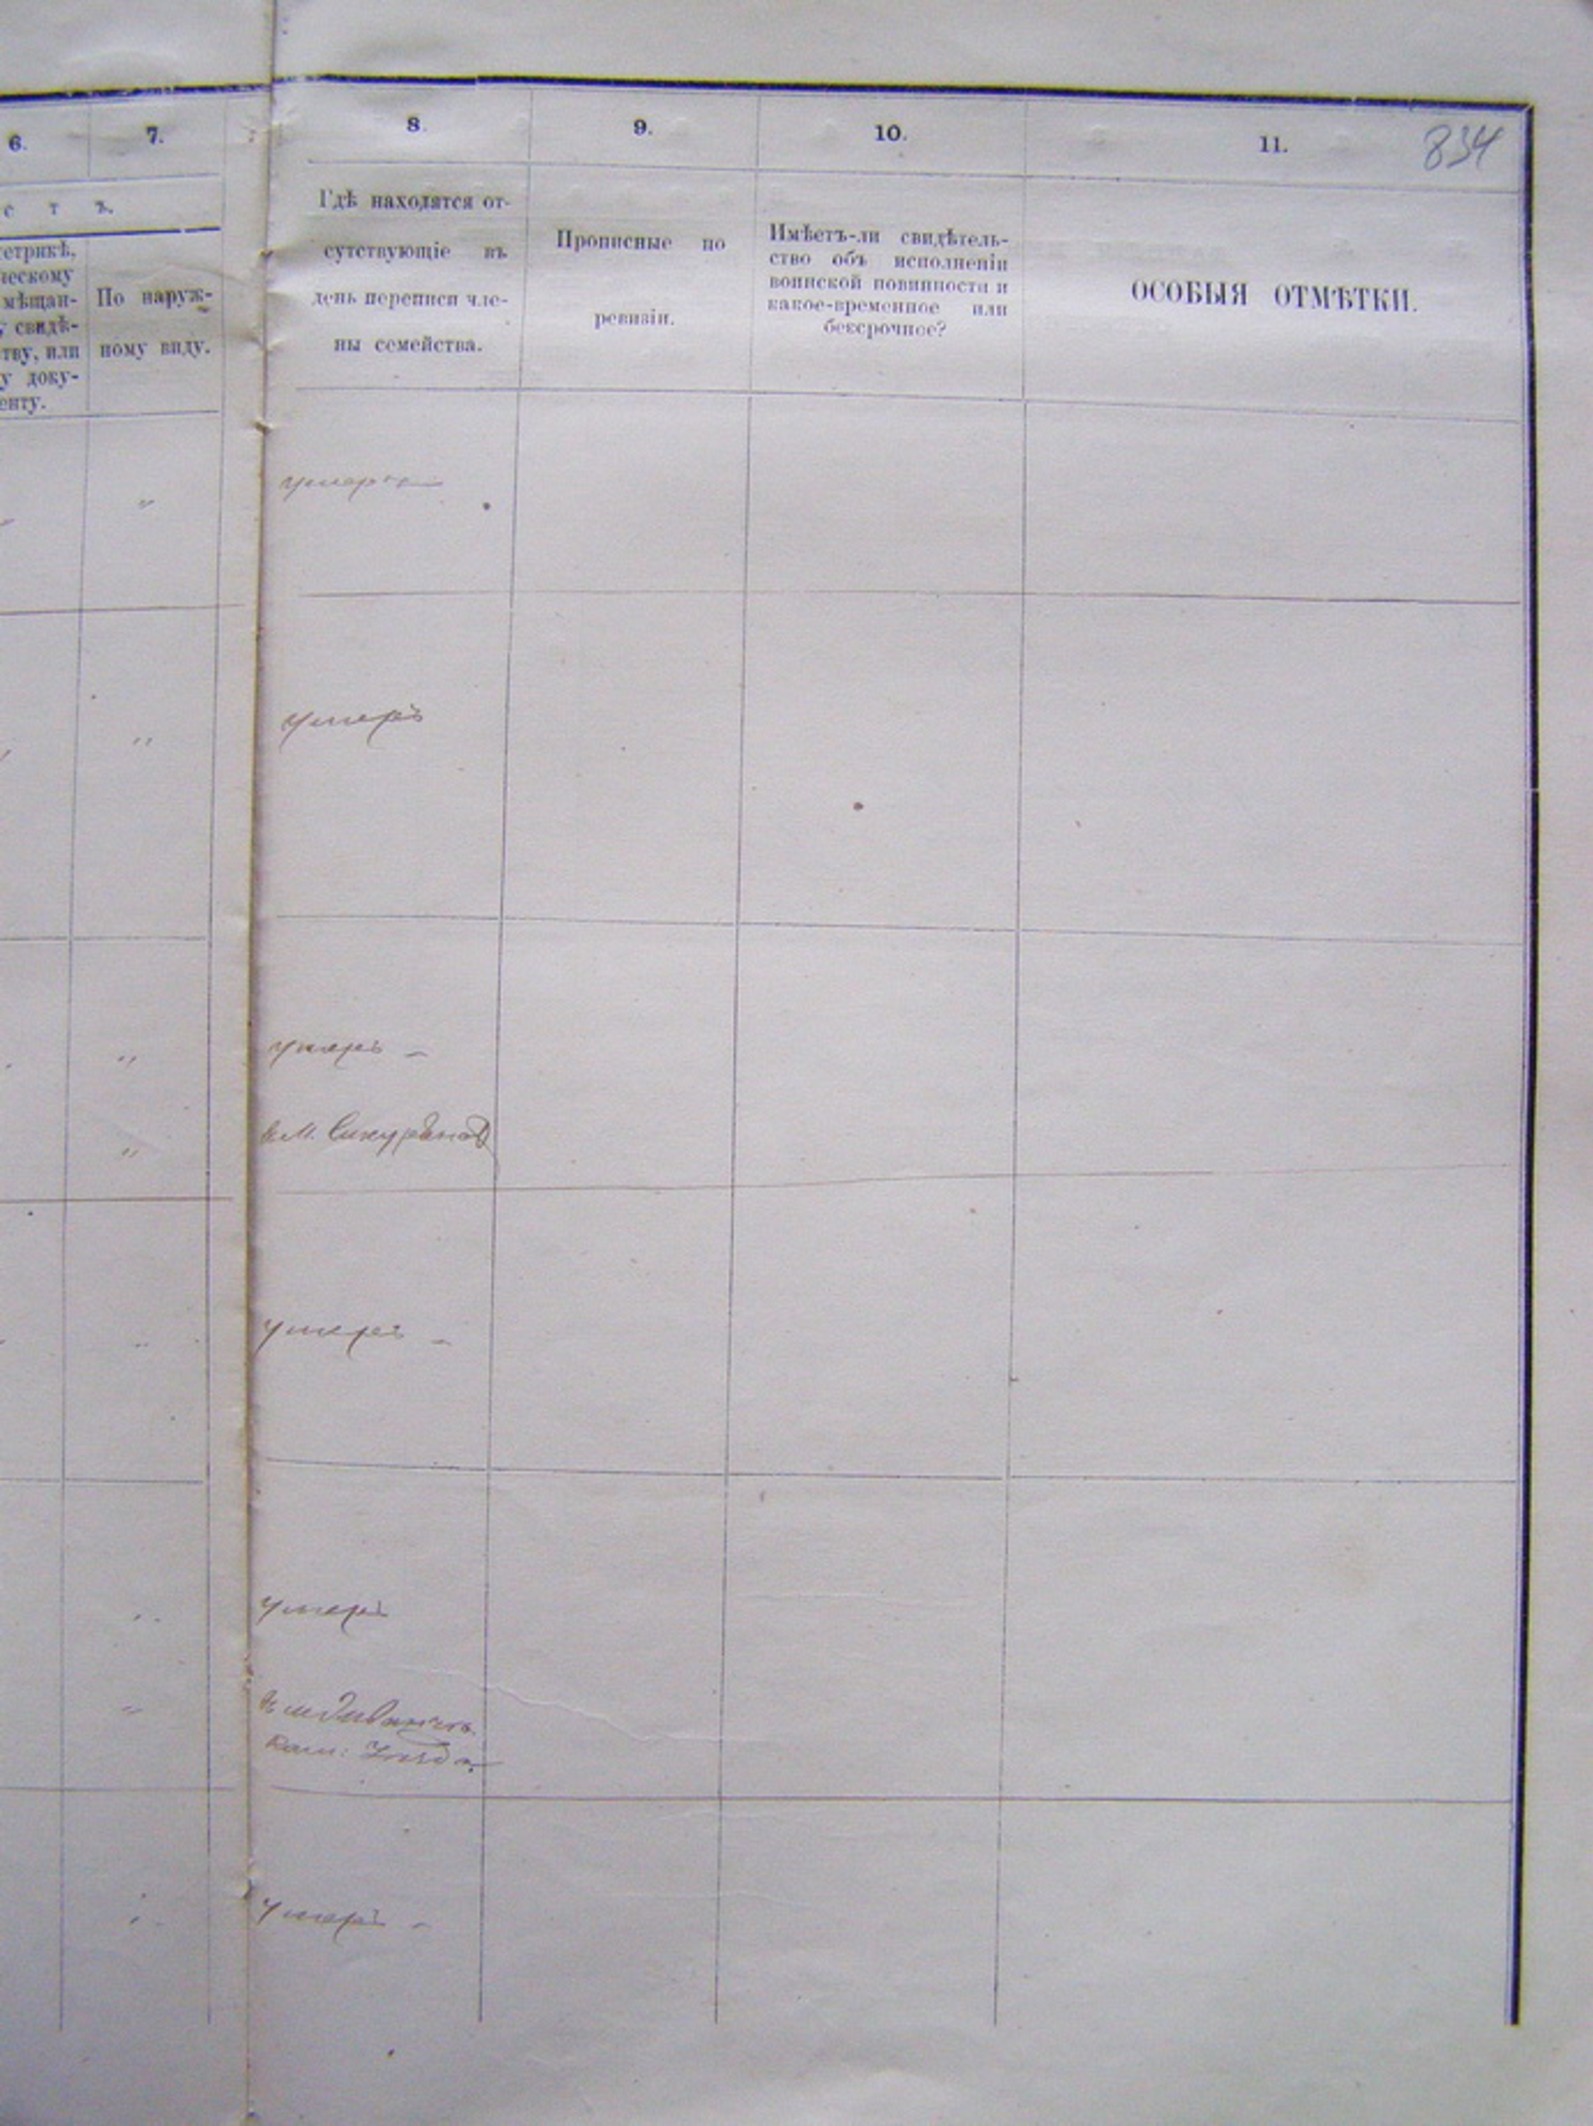 6.
7.
8.
9.
10.
11.
834
с т ъ.
етрикѣ,
ческому
мѣщан-
у свидѣ-
тву, или
у доку-
енту.
По наруж-
ному виду.
Гдѣ находятся от-
сутствующіе въ
день переписи чле-
ны семейства.
Прописные по
ревизіи.
Имѣетъ-ли свидѣтель-
ство объ исполненіи
воинской повинности и
какое-временное или
безсрочное?
ОСОБЫЯ ОТМѢТКИ.
" умеръ
" умеръ
" умеръ –
" в. м.
" умеръ –
" умеръ
"
" умеръ –